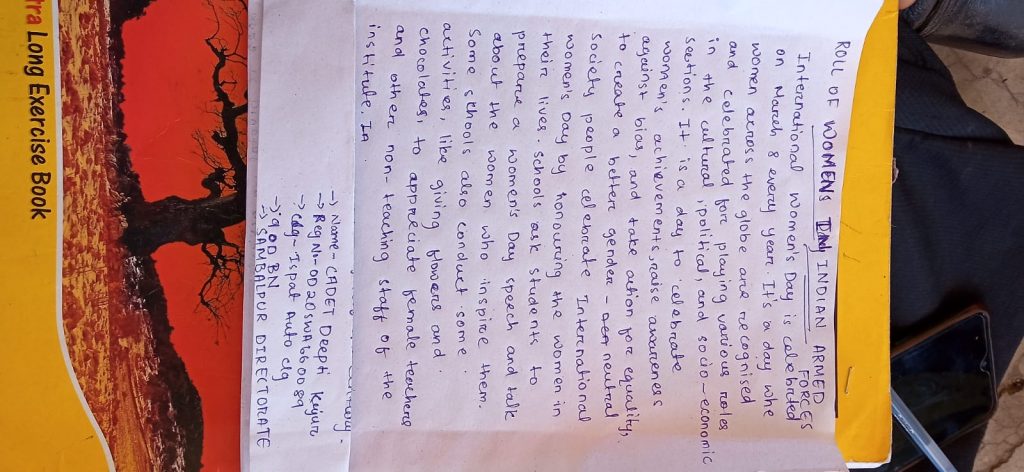 ROLL OF WOMEN'S INDIAN ARMED
FORCES
International Women's Day is celebrated
on March 8 every year. It's a day whe
women across the globe are recognised
and celebrated for playing various roles
in the cultural, political, and socio-economic
sections. It is a day to celebrate
women's achievements, raise awareness
against bias, and take action for equality,
to create a better gender - neutral
society people celebrate International
women's Day by honouring the women in
their lives. Schools ask students to
prepare a women's Day speech and talk
about the women who inspire them.
Some schools also conduct some
activities, like giving flowers and
chocolates, to appreciate female teachers
and other non-teaching staff of the
institute. In
→ Name - CADET Deepti Kujur
→ Reg No - OD20SWA660089
→ clg - Ispat Auto clg
→ 9 OD BN
→ SAMBALPUR DIRECTORATE
ra Long Exercise Book